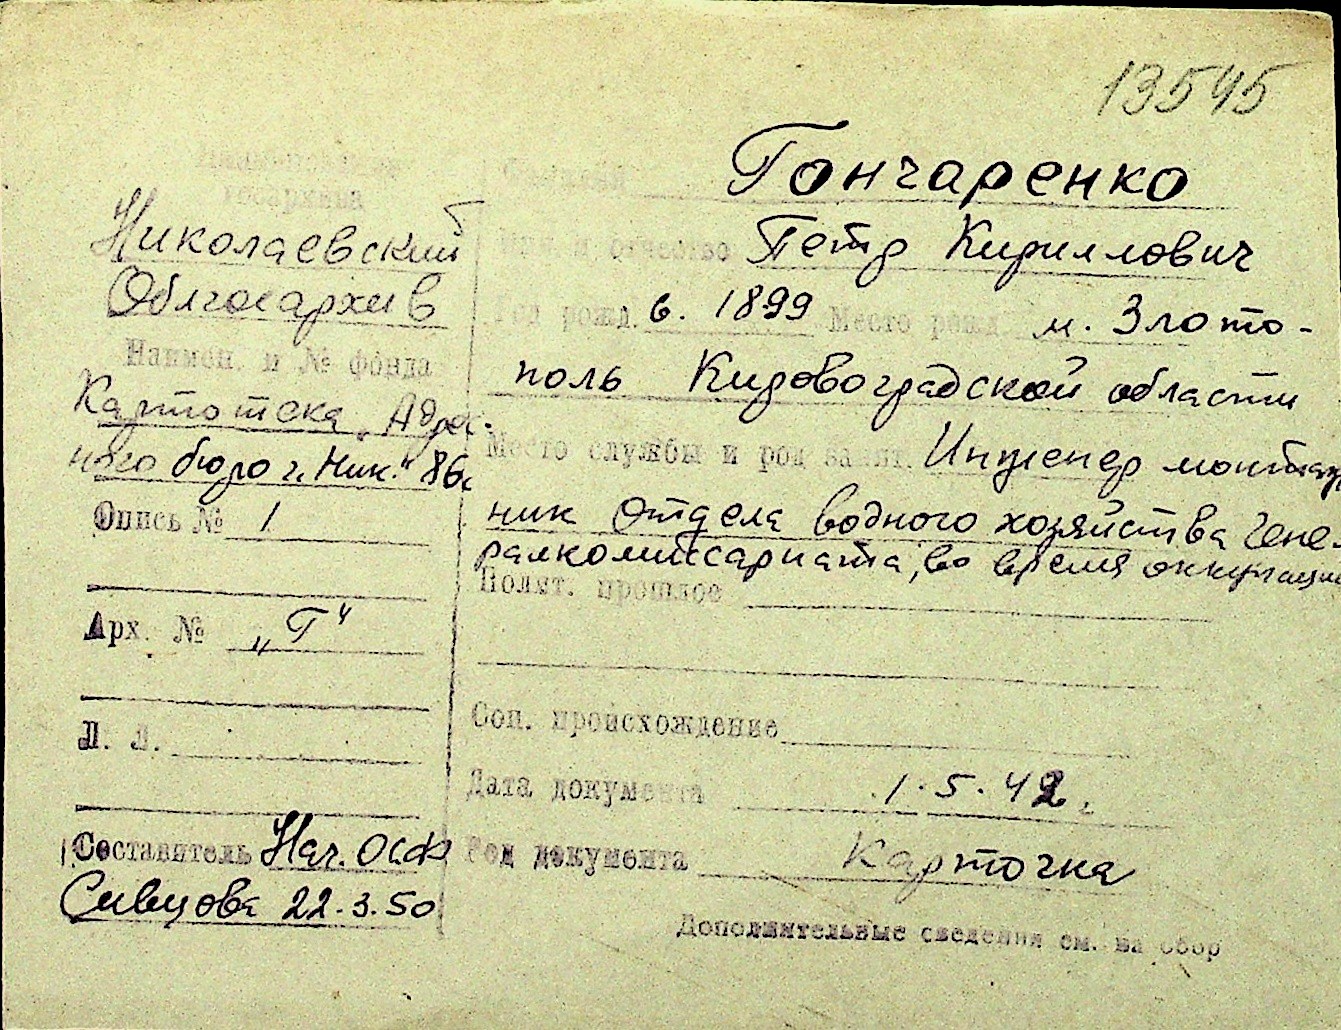 13545
Наименование
госархива
Николаевский
Облгосархив
Наимен. и № фонда
Картотека „Адрес-
ного бюро г. Ник." 86.
Опись № 1
Арх. № „Г"
Л. Л.
Составитель Нач. ОСФ
Сивцова 22.3.50
Фамилия Гончаренко
Имя и отчество Петр Кириллович
Год рожд. в. 1899 Место рожд. м. Злото-
поль Кировоградской области
Место службы и род занят. Инженер монтаж
ник отдела водного хозяйства Гене-
ралкомиссариата, во время оккупации
Полит. прошлое
Соц. происхождение
Дата документа 1.5.42 г.
Род документа Карточка
Дополнительные сведения см. на обор